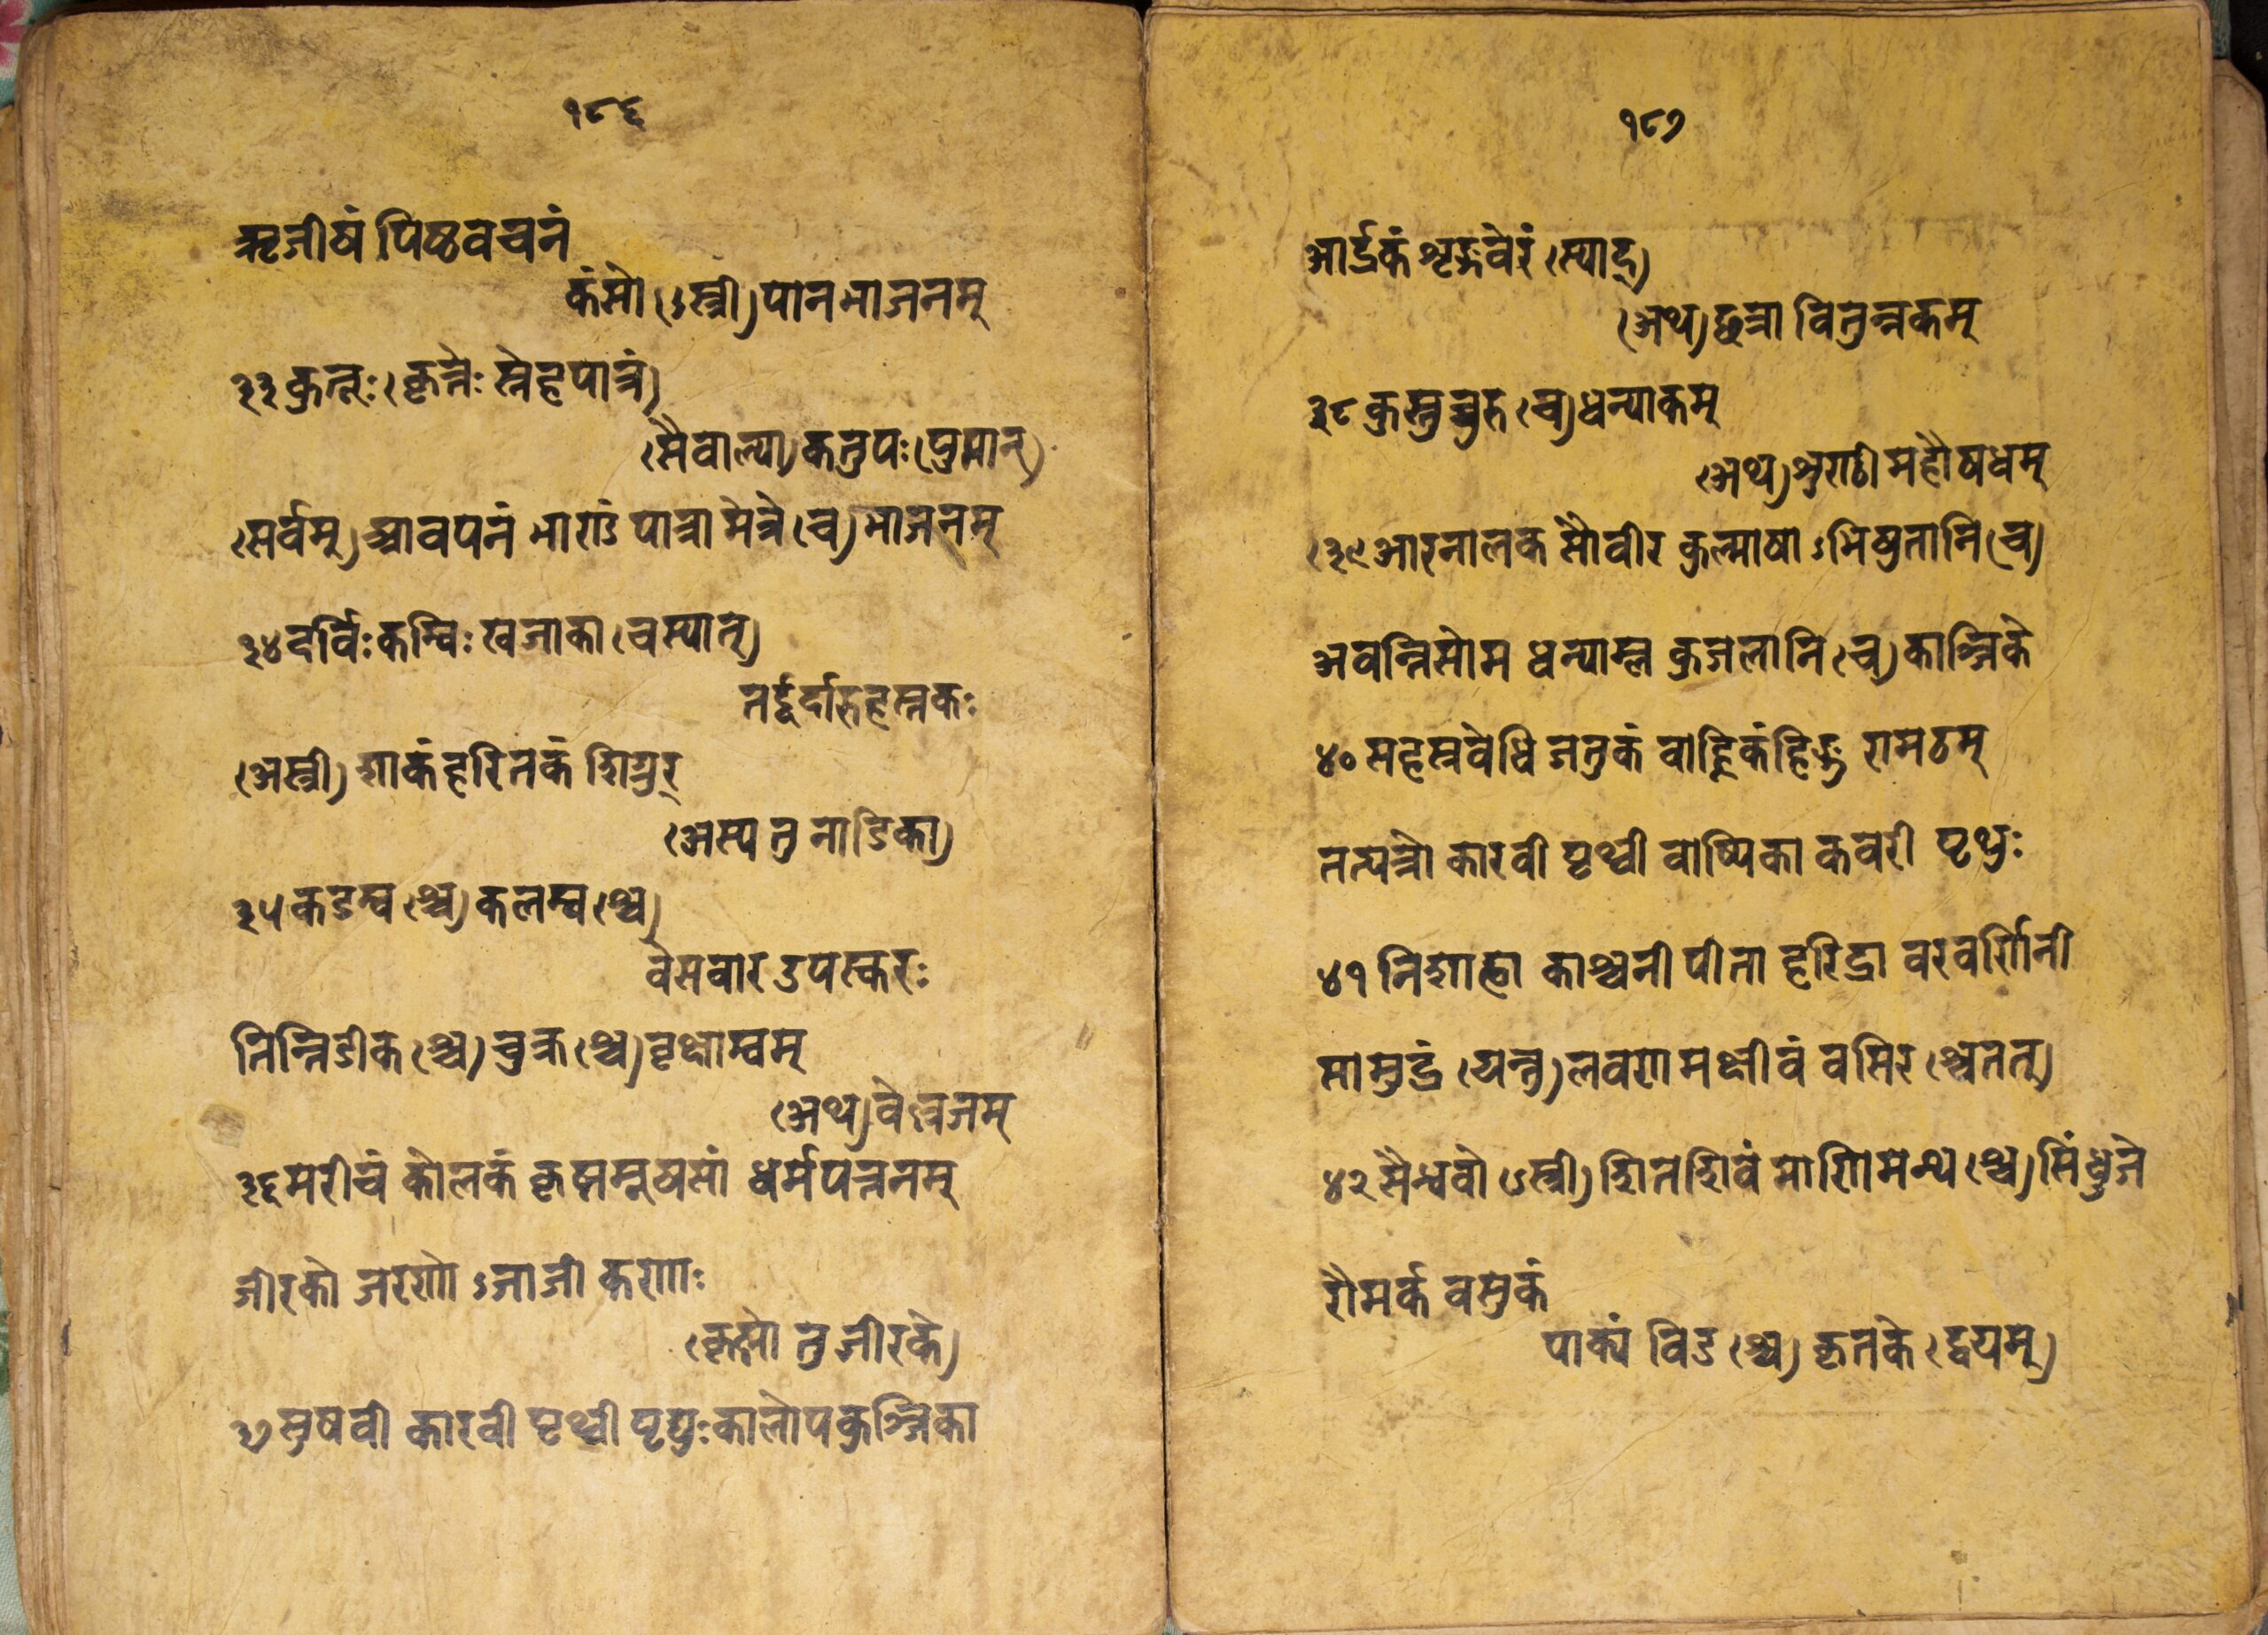 १८६
ऋजीषं पिष्टवचनं
कंसो (ऽस्त्री) पानभाजनम्
३३ कुतूः (कृत्तेः स्नेहपात्रं)
(सैवाल्पा) कुतुपः (पुमान्)
(सर्वम्) आवपनं भाण्डं पात्रामत्रे (च) भाजनम्
३४ दर्विः कम्विः खजाका (चस्यात्)
तर्द्दूर्दारुहस्तकः
(अस्त्री) शाकं हरितकं शिग्रुर्
(अस्य तु नाडिका)
३५ कडम्ब (श्च) कलम्ब (श्च)
वेसवार उपस्करः
तिन्तिडीक (ञ्च) चुक्र (ञ्च) वृक्षाम्लम्
(अथ) वेल्लजम्
३६ मरीचं कोलकं कृष्णमूषसां धर्मपत्तनम्
जीरको जरणो ऽजाजी कणाः
(कृष्णे तु जीरके)
३७ सुषवी कारवी पृथ्वी पृथुः कालोपकुञ्चिका
१८७
आर्द्रकं शृङ्गवेरं (स्याद्)
(अथ) छत्रा वितुन्नकम्
३८ कुस्तुम्बुरु (च) धन्याकम्
(अथ) शुण्ठी महौषधम्
३९ आरनालक सौवीर कुल्माषा ऽभिषुतानि (च)
अवन्तिसोम धन्याम्ल कुञ्जलानि (च) काञ्जिके
४० सहस्रवेधि जतुकं वाह्लिकं हिङ्गु रामठम्
तत्पत्री कारवी पृथ्वी वाष्पिका कवरी पृथुः
४१ निशाह्वा काञ्चनी पीता हरिद्रा वरवर्णिनी
सामुद्रं (यत्तु) लवणमक्षीवं वसिर (ञ्चतत्)
४२ सैन्धवो (ऽस्त्री) शितशिवं माणिमन्थ (ञ्च) सिंधुजे
रौमकं वसुकं
पाक्यं विड (ञ्च) कृतके (द्वयम्)